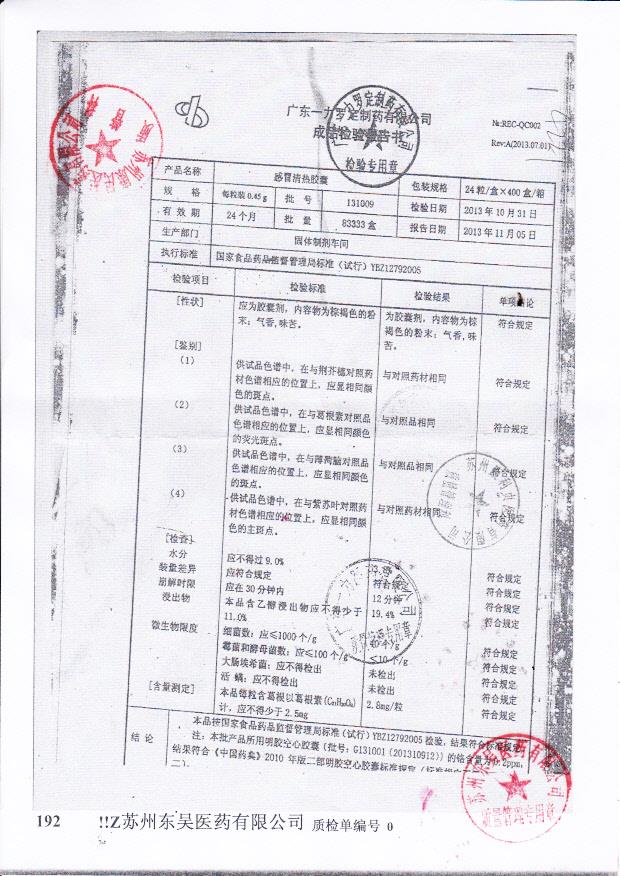 广东一力罗定制药有限公司
成品检验报告书
№:REC-QC002
Rev:A(2013.07.01)
检验专用章
产品名称 感冒清热胶囊 包装规格 24粒/盒×400盒/箱
规 格 每粒装0.45g 批 号 131009 检验日期 2013年10月31日
有 效 期 24个月 批 量 83333盒 报告日期 2013年11月05日
生产部门 固体制剂车间
执行标准 国家食品药品监督管理局标准（试行）YBZ12792005
检验项目 检验标准 检验结果 单项结论
[性状] 应为胶囊剂，内容物为棕褐色的粉末；气香，味苦。 为胶囊剂，内容物为棕褐色的粉末；气香，味苦。 符合规定
[鉴别]
(1) 供试品色谱中，在与荆芥穗对照药材色谱相应的位置上，应显相同颜色的斑点。 与对照药材相同 符合规定
(2) 供试品色谱中，在与葛根素对照品色谱相应的位置上，应显相同颜色的荧光斑点。 与对照品相同 符合规定
(3) 供试品色谱中，在与薄荷脑对照品色谱相应的位置上，应显相同颜色的斑点。 与对照品相同 符合规定
(4) 供试品色谱中，在与紫苏叶对照药材色谱相应的位置上，应显相同颜色的主斑点。 与对照药材相同 符合规定
[检查]
水分 应不得过9.0% 符合规定
装量差异 应符合规定 符合规定 符合规定
崩解时限 应在30分钟内 12分钟 符合规定
浸出物 本品含乙醇浸出物应不得少于11.0% 19.4% 符合规定
微生物限度 细菌数：应≤1000个/g 个/g 符合规定
霉菌和酵母菌数：应≤100个/g ≤10个/g 符合规定
大肠埃希菌：应不得检出 未检出 符合规定
活 螨：应不得检出 未检出 符合规定
[含量测定] 本品每粒含葛根以葛根素(C₂₁H₂₀O₉)计，应不得少于2.5mg 2.8mg/粒 符合规定
结论 本品按国家食品药品监督管理局标准（试行）YBZ12792005检验，结果符合标准规定。
注：本批产品所用明胶空心胶囊（批号：G131001（20130912））的铬含量为0.2ppm，
结果符合《中国药典》2010年版二部明胶空心胶囊标准规定
苏州东吴医药有限公司
质量管理专用章
192 !!Z苏州东吴医药有限公司 质检单编号 0